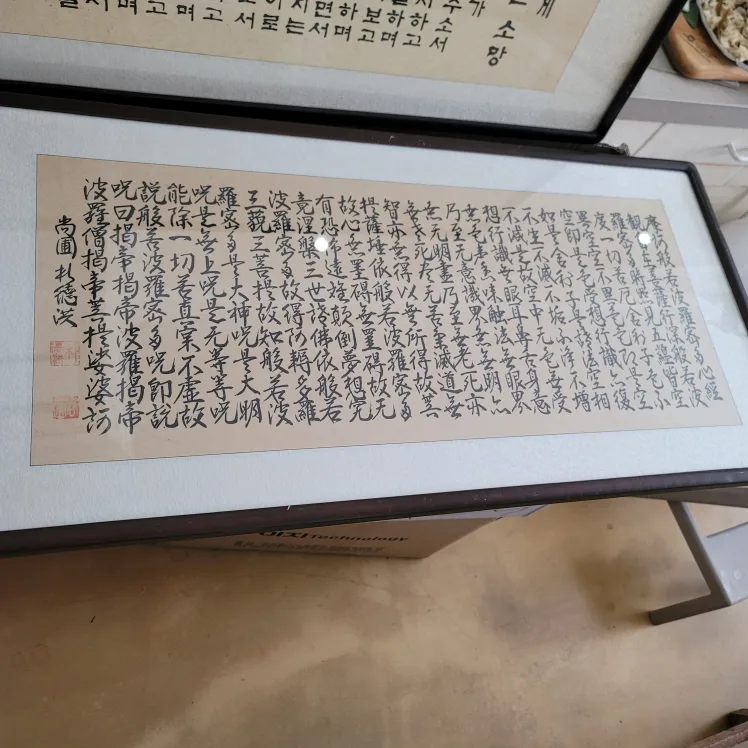 소망
摩訶般若波羅密多心經
觀自在菩薩行深般若波
羅密多時照見五蘊皆空
度一切苦厄舍利子色不
異空空不異色色卽是空
空卽是色受想行識亦復
如是舍利子是諸法空相
不生不滅不垢不淨不增
不減是故空中无色无受
想行識無眼耳鼻舌身意
無色聲香味触法無眼界
乃至無意識界無無明亦
無無明盡乃至無老死亦
無老死盡无苦集滅道無
智亦無得以無所得故菩
提薩埵依般若波羅密多
故心無罣碍無罣碍故无
有恐怖遠離顛倒夢想究
竟涅槃三世諸佛依般若
波羅密多故得阿耨多羅
三藐三菩提故知般若波
羅密多是大神呪是大明
呪是無上呪是无等等呪
能除一切苦真實不虛故
說般若波羅密多呪即說
呪曰揭帝揭帝波羅揭帝
波羅僧揭帝菩提娑婆訶
尚圃 朴德洪
이지Technology